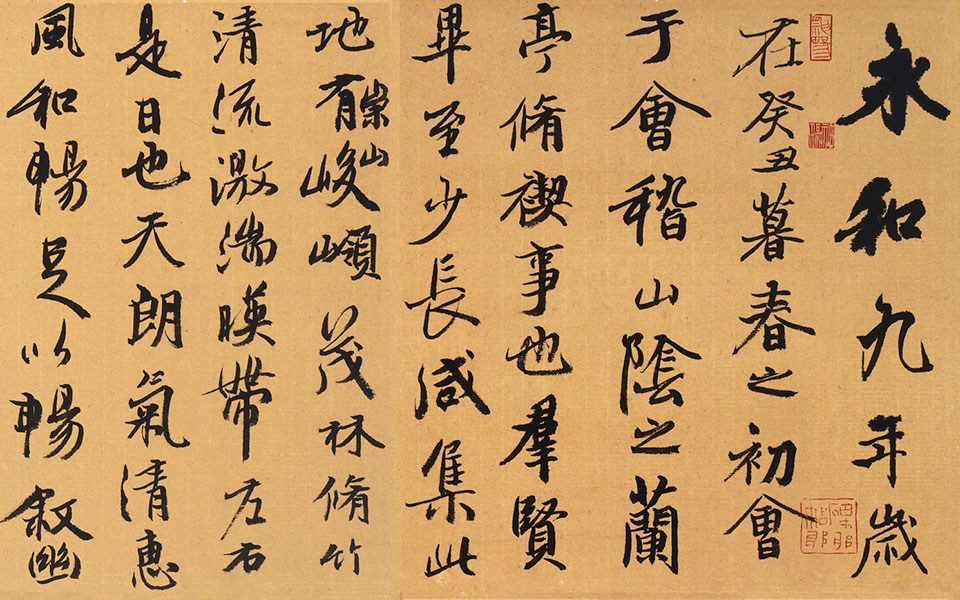 永和九年歲
在癸丑暮春之初會
于會稽山陰之蘭
亭脩禊事也羣賢
畢至少長咸集此
地有崇山峻嶺茂林脩竹
清流激湍暎帶左右
是日也天朗氣清惠
風和暢足以暢敘幽